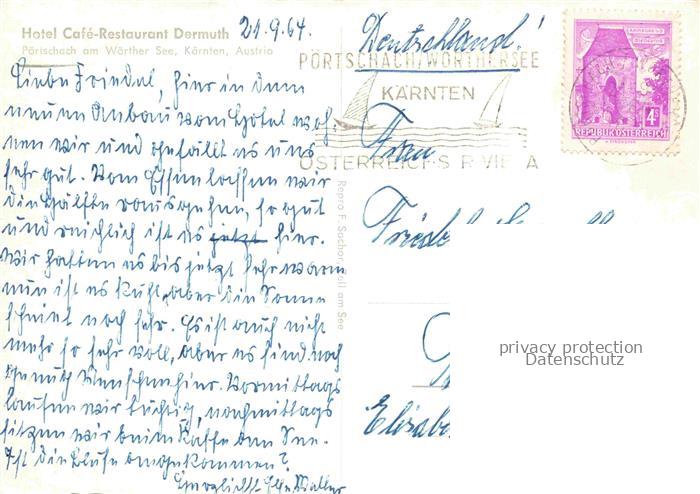 Hotel Café-Restaurant Dermuth
Pörtschach am Wörther See, Kärnten, Austria
21.9.64.
Liebe Friedel, hier in dem
neuen Anbau vom Hotel woh-
nen wir und gefällt es uns
sehr gut. Vom Essen lassen wir
die Hälfte raus gehen, so gut
und reichlich ist es jetzt hier.
Wir hatten es bis jetzt sehr warm
nun ist es kühl, aber die Sonne
scheint noch sehr. Es ist auch nicht
mehr so sehr voll, aber es sind noch
genug Menschen hier. Vormittags
laufen wir tüchtig, nachmittags
sitzen wir beim Kaffe am See.
Ist die Bluse angekommen?
Herzlichst
Deutschland!
PÖRTSCHACH/WÖRTHERSEE
KÄRNTEN
ÖSTERREICHS RIVIERA
4S
REPUBLIK ÖSTERREICH
Frau
Friede
Elisab
privacy protection
Datenschutz